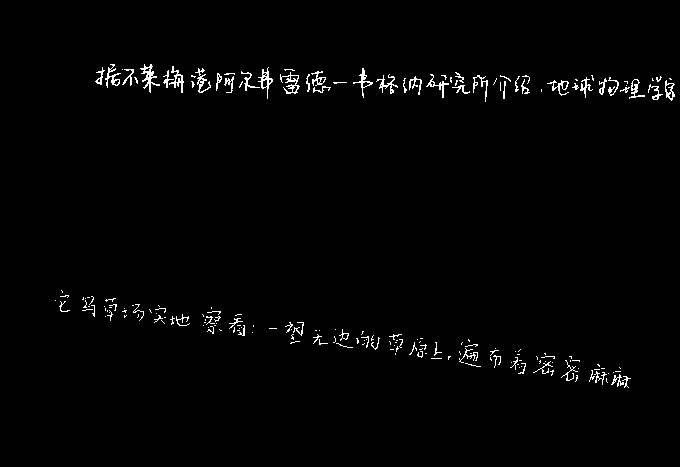 据不莱梅港阿尔弗雷德一韦格纳研究所介绍,地球物理学家
它写草场实地察看:一望无边的草原上,遍布着密密麻麻